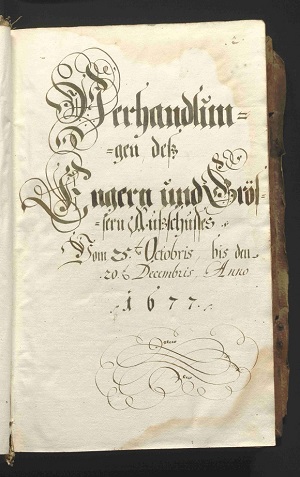 Verhandlun=
=gen deß
Engern und Grös=
=sern Außschusses.
Vom 25.ᵗ Octobris, bis den
20.ᵗ Decembris, Anno
1677.